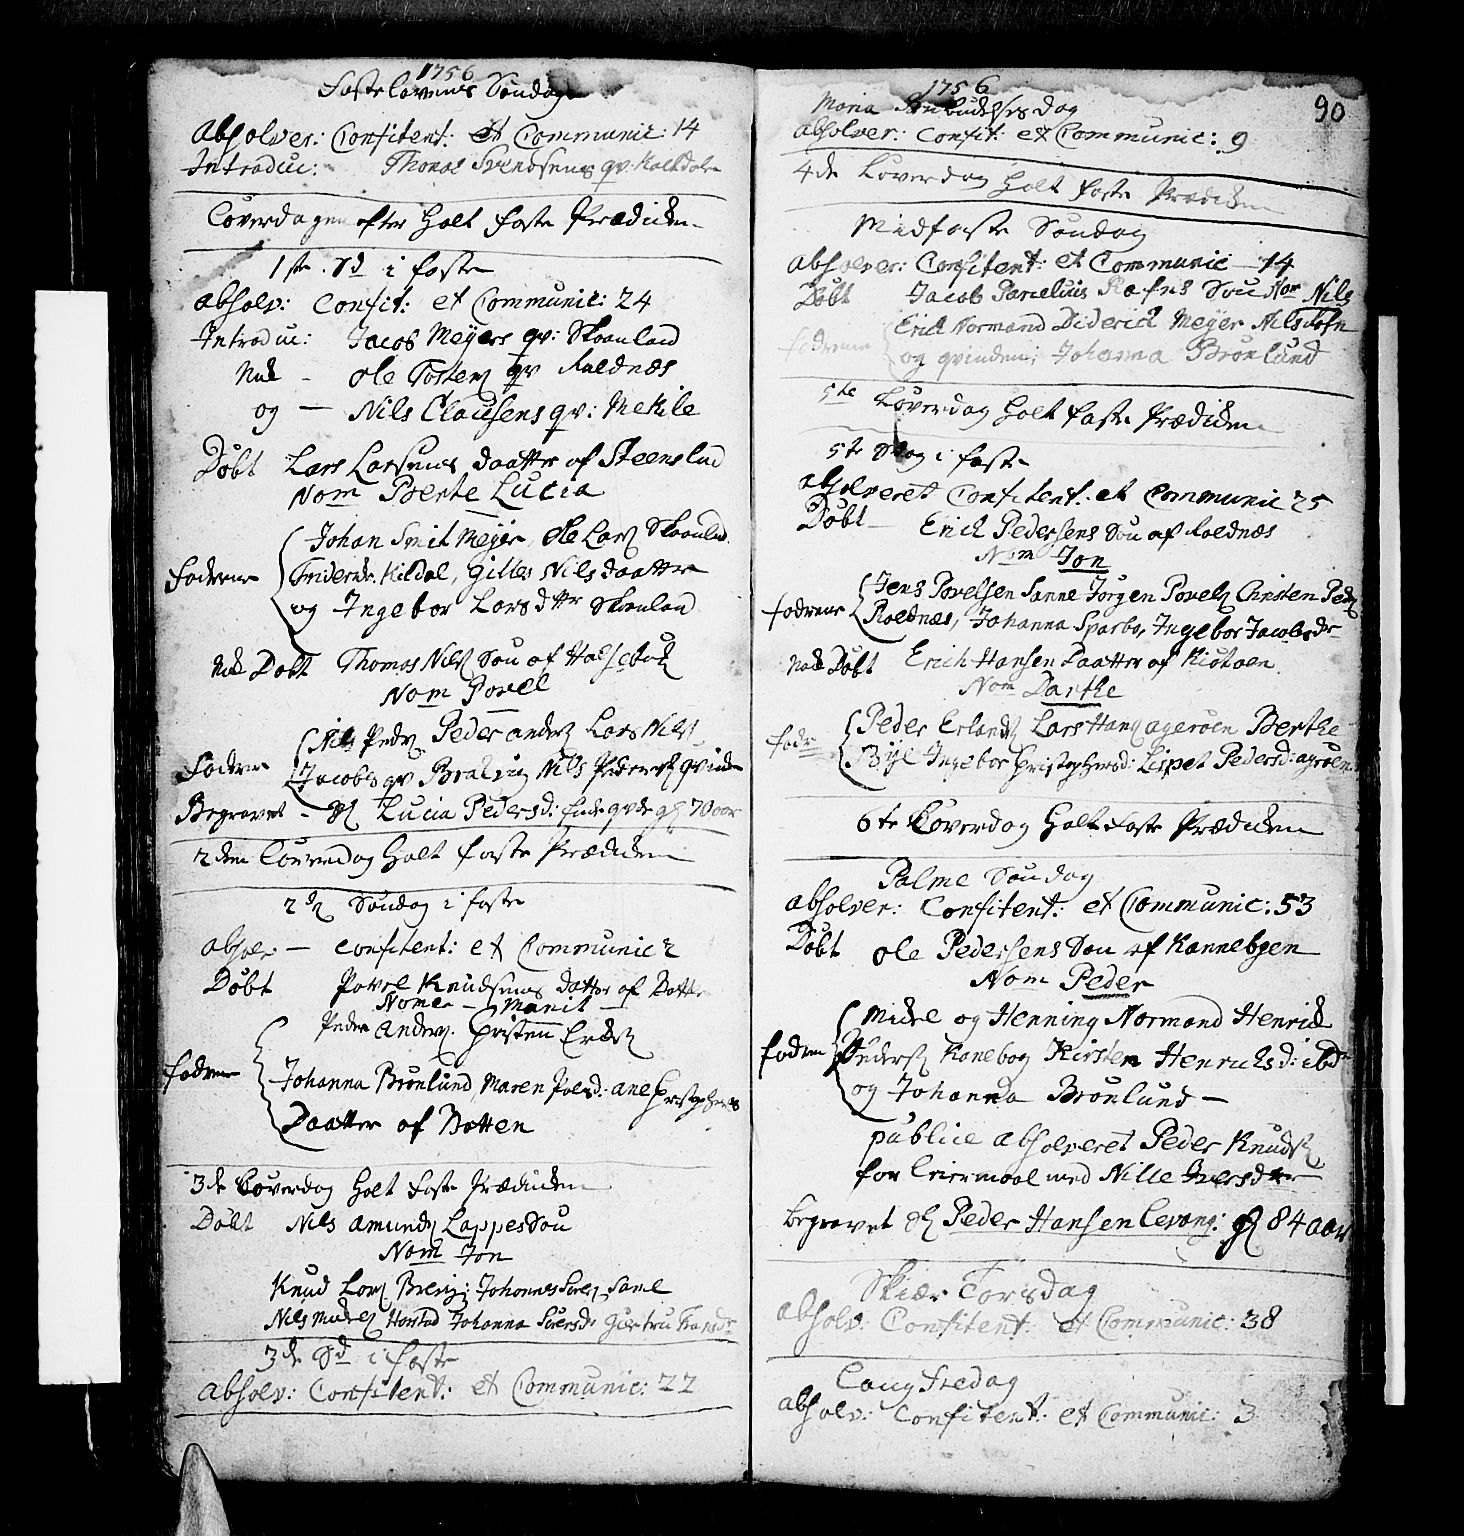 1756
Fastelavens Søndag
absolver: Confitent: et Communic: 14
Introduc: Thomas Svendsens qv. Kaltdalen
Löverdagen efter holt faste Prædiken
1ste Sd i faste
absolv: Confit: et Communic: 24
Introduc: Jacob Meyers qv: Skaanland
Nok - Ole Tostens qv Roldnæs
og — Nils Clausens qv: Mekile
Döbt Lars Larsens daatter af Steensland
Nom Berte Lucia
Johan Smit Meyer, Ole Lars Skaanland
Faderne Kildal, Gilles Nilsdaatter
og Ingebor Larsdttr Skaanland
Nok Döbt Thomas Nils Sön af
Nom Povel
Nils Peders Peder anders Lars Nils
Faderne Jacobs qv Nils Peders qvinde
Begravet - Lucia Pedersd: 70 aar
2den Löverdag holt faste Prædiken
2den Söndag i faste
absol: — confitent: et Communic 2
Döbt Povel Knudsens datter af Botten
Nomen - Marit
Peder Anders. Christen Ericks
Faderne Johanna Brönlund, Maren Polsd: ane Christophers
Daatter af Botten
3de Löverdag holt faste Prædiken
Döbt Nils Amunds Lappes Sön
Nom Jon
Knud Lars Johannes Sörens
Nils Mickels Harstad Johanna Siversd: Giertru Hansdr
3de Sd i faste
absolv: Confitent: et Communic: 22
1756
90
Maria Bebudelses dag
absolver: Confit: et Communic: 9
4de Löverdag holt faste Prædiken
Midfaste Søndag
absolver: Confitent: et Communic 14
Döbt Jacob Parelius Rafns Sön Nom Nils
Faderne Erich Normand Diderich Meyer Nils Rafn
og qvinden; Johanna Brönlund
5te Löverdag holt faste Prædiken
5te Sdag i faste
absolveret Confitent: et Communic 25
Döbt — Erich Pedersens Sön af Roldnæs
Nom Jon
Jens Povelsen Sanne Jörgen Povels Christen Peders
Faderne Roldnæs, Johanna Sparbo, Ingebor Jacobsdr
Nok Döbt Erich Hansen Daatter af Kiötøen
Nom Darthe
Peder Erlands Lars Hans agerøen Berthe
Fadr Ingebor Christophersd: Lispet Pedersd: agrøen
6te Löverdag holt faste Prædiken
Palme Söndag
absolver: Confitent: et Communic: 53
Döbt Ole Pedersens Sön af Kannebogen
Nom Peder
Mickel og Henning Normand Henrick
Fadern Peders Kanebog Kirsten Henrichsd: ibd
og Johanna Brönlund —
publice absolveret Peder Knuds
for Leiermaal med Nille Iversdtr
begravet Peder Hansen 84 aar
Skier Torsdag
absolv: Confitent: et Communic: 38
Langfredag
absolv: Confitent: et Communic: 3